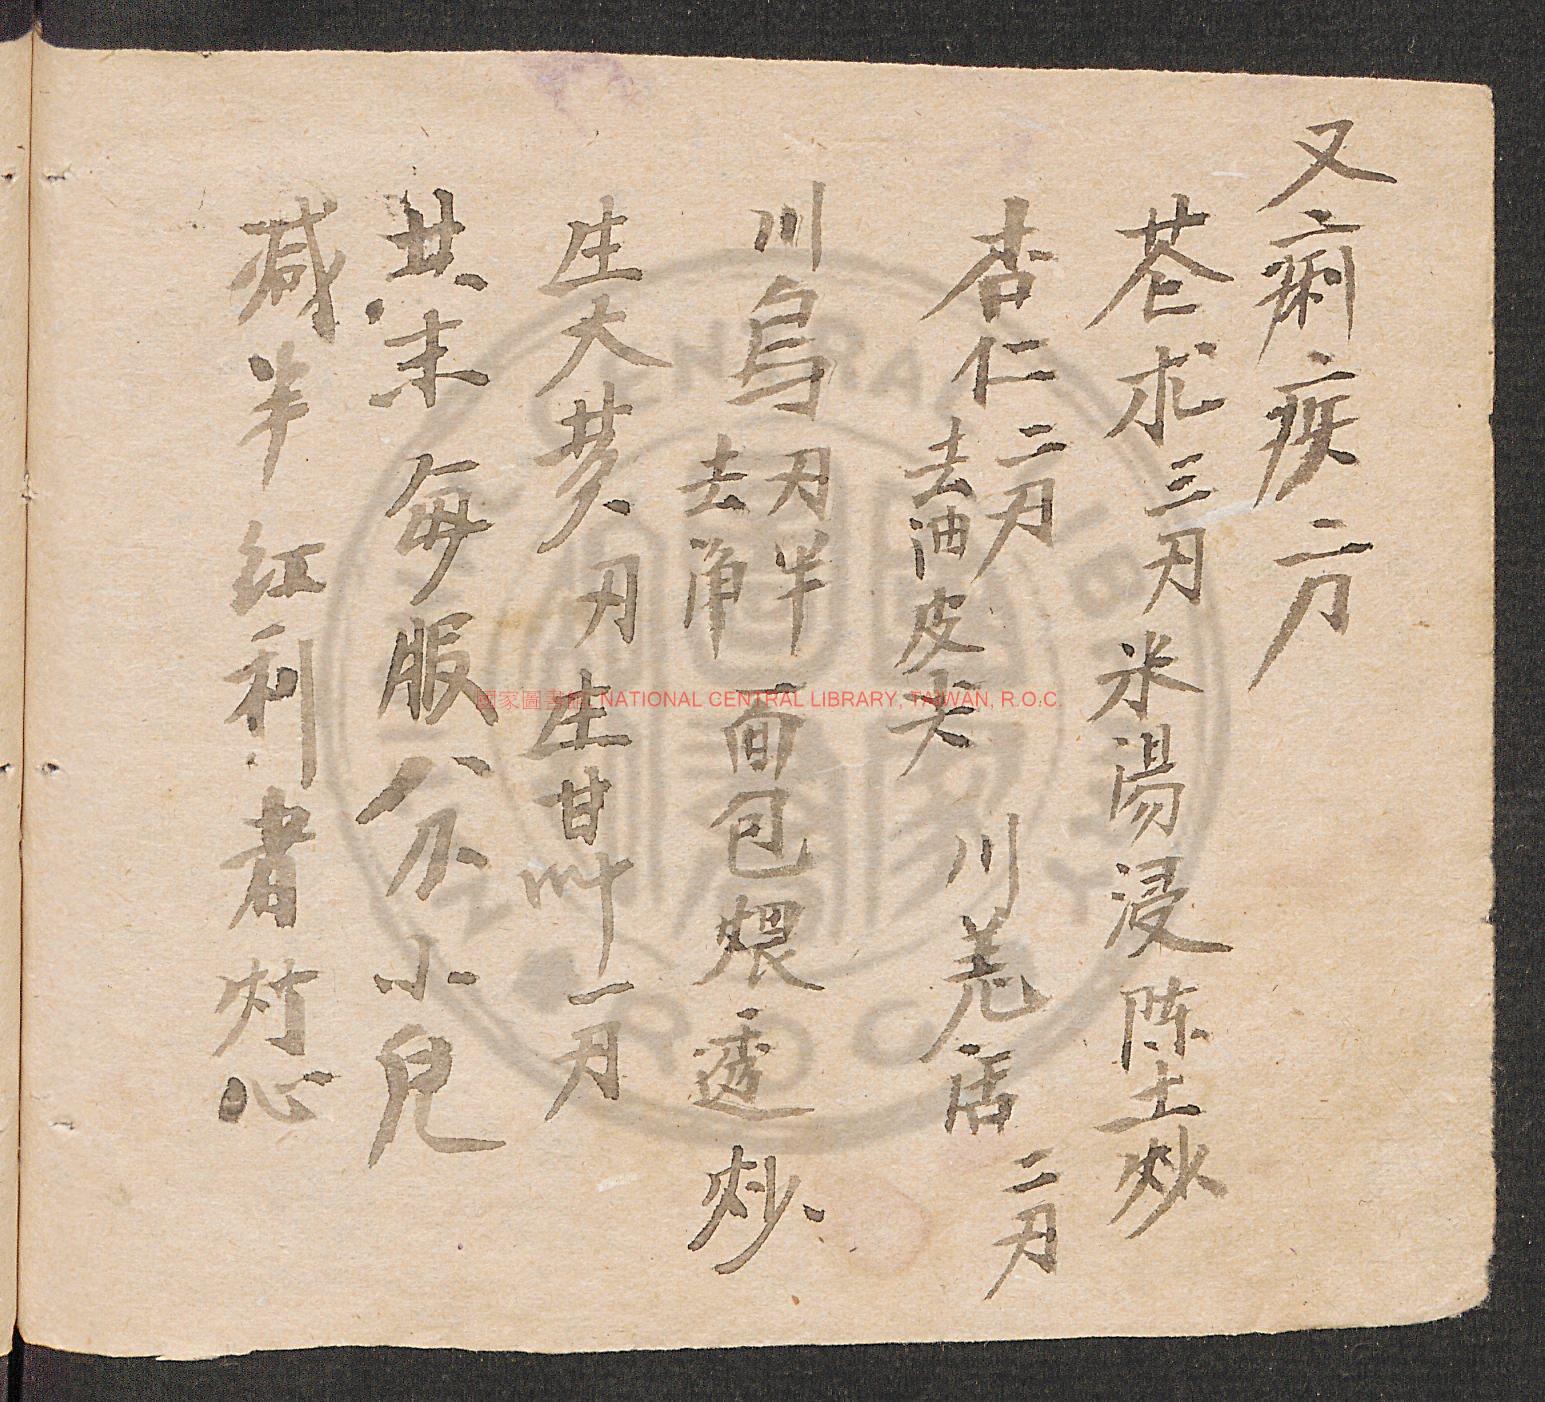 又痢疾方
苍术三刃米湯浸陈土炒
杏仁二刃去油皮尖 川羌活二刃
川烏刃半去角 面包煨透炒
生大黄刃生甘叶一刃
共末每服八分小兒
减半红利者灯心
國家圖書館 NATIONAL CENTRAL LIBRARY, TAIWAN, R.O.C.